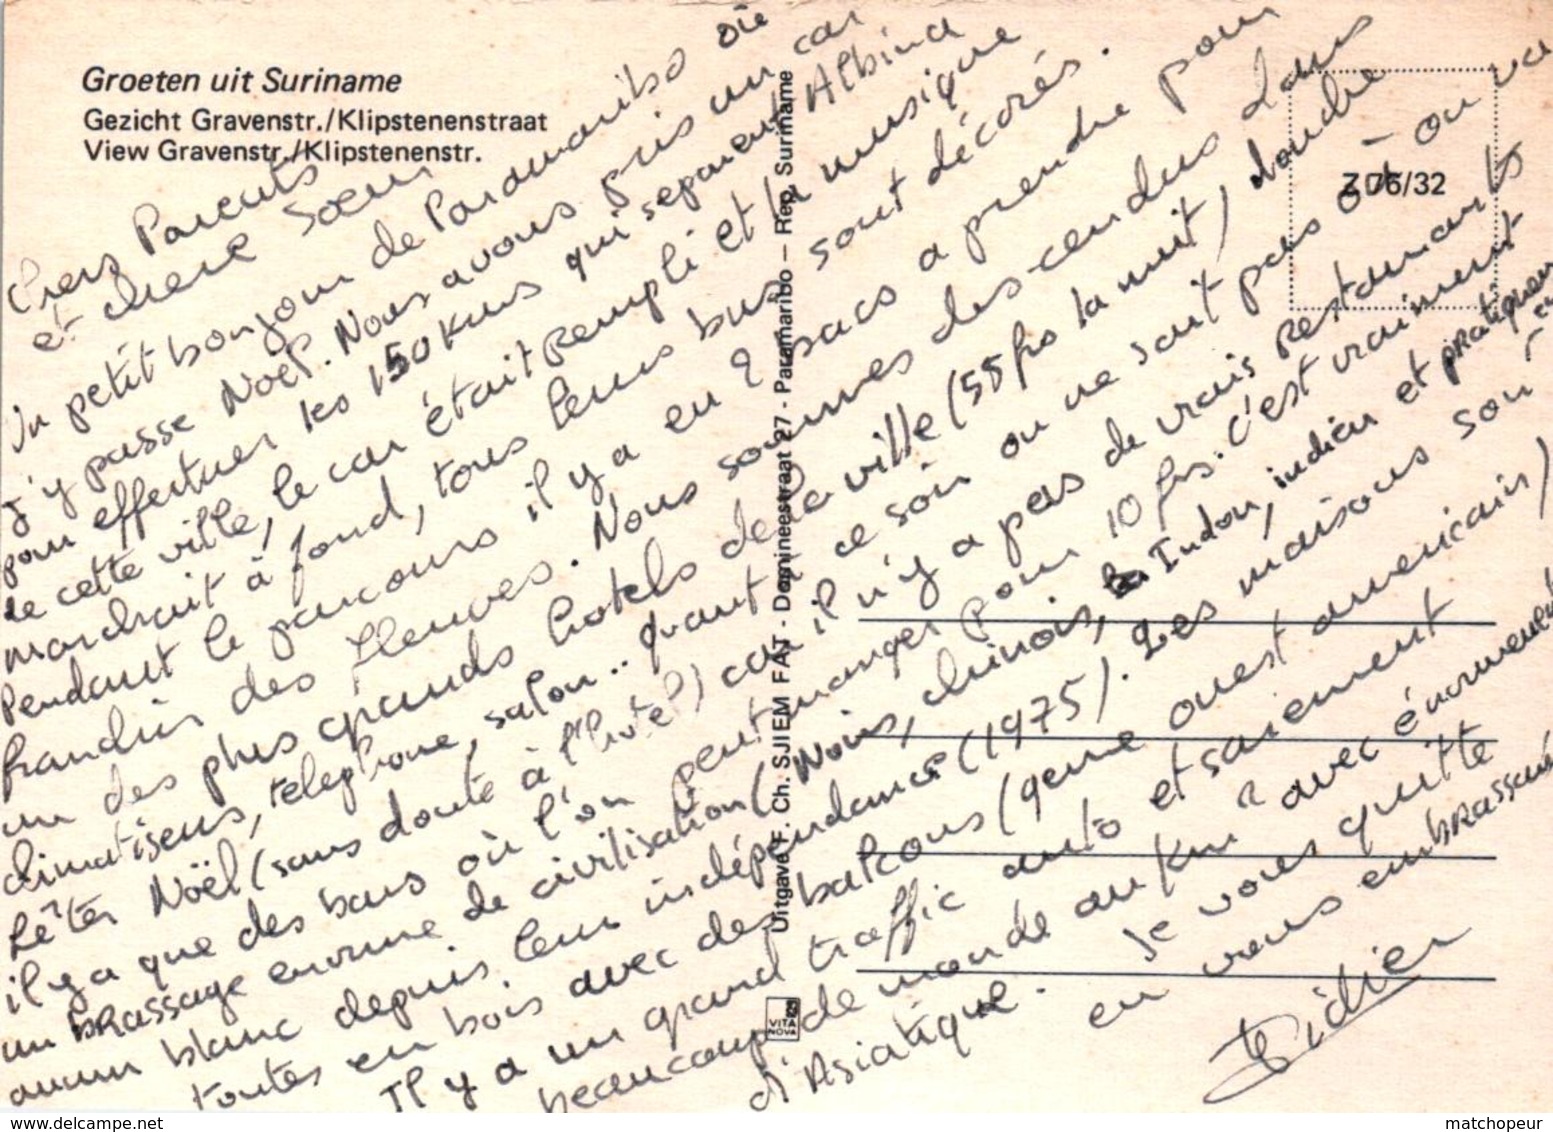 Groeten uit Suriname
Gezicht Gravenstr./Klipstenenstraat
View Gravenstr./Klipstenenstr.
Z 76/32
Uitgave F. Ch. SJIEM FAT - Domineestraat 27 - Paramaribo - Rep. Suriname
VITA
NOVA
Chers Parents
et chere Soeur
Un petit bonjour de Paramaribo où
j'y passe Noël. Nous avons pris un car
pour effectuer les 150 Kms qui separent Albina
de cette ville, le car était rempli et la musique
marchait à fond, tous leurs bus sont décorés.
Pendant le parcours il y a eu 2 bacs a prendre pour
franchir des fleuves. Nous sommes des-cendus dans
un des plus grands hotels de la ville (55 frs la nuit) douche
climatiseurs, telephone, salon.. quant à ce soir on ne sait pas où on va
fêter Noël (sans doute à l'hotel) car il n'y a pas de vrais Restaurants
il y a que des bars où l'on peut manger pour 10 frs. c'est vraiment
un brassage enorme de civilisation (Noirs, chinois, Indon, indien et pratiquement
aucun blanc depuis leur indépendance (1975). Les maisons sont
toutes en bois avec des balcons (genre ouest americain)
Il y a un grand traffic auto et surement
beaucoup de monde au Km² avec énormement
d'Asiatique. Je vous quitte
en vous embrassant
Didier
www.delcampe.net
matchopeur